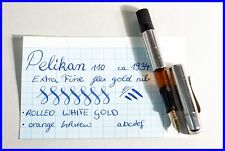 Pelikan 110 ca 1934
Extra Fine flex gold nib
• ROLLED WHITE GOLD
• orange inkview abcdef